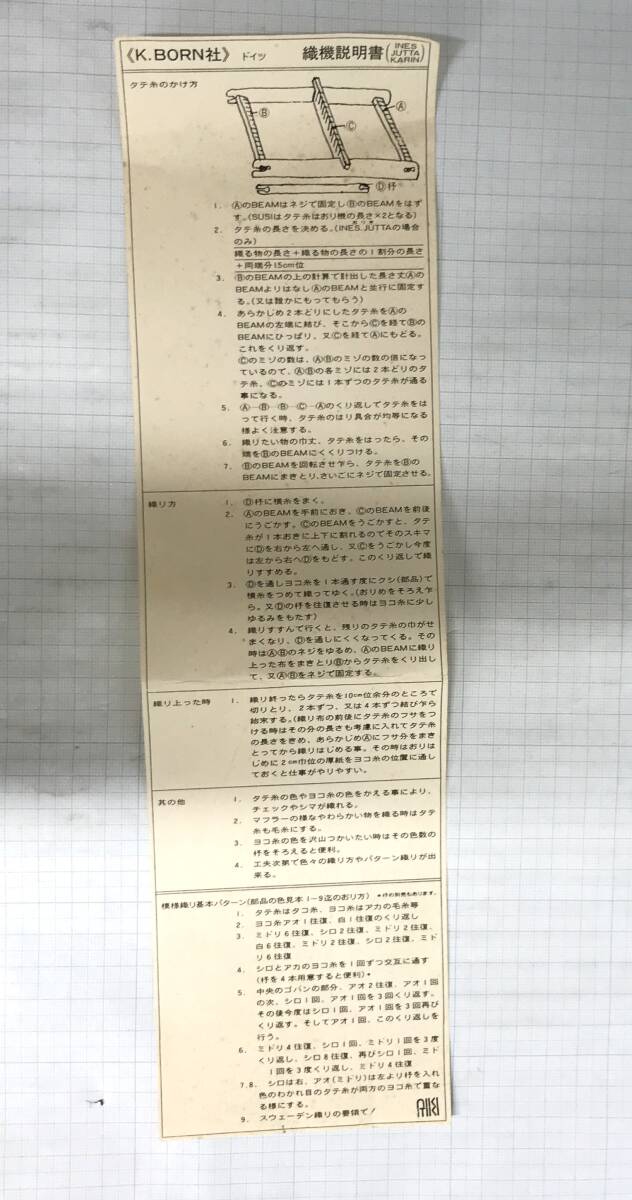 《K.BORN社》 ドイツ 織機説明書(INES JUTTA KARIN)
タテ糸のかけ方
Ⓐ
Ⓑ
Ⓒ
Ⓓ杼
1. ⒶのBEAMはネジで固定しⒷのBEAMをはず
す。(SUSIはタテ糸はおり機の長さ×2となる)
2. タテ糸の長さを決める。(INES.JUTTAの場合
のみ)
織る物の長さ+織る物の長さの1割分の長さ
+両端分15cm位
3. ⒷのBEAMの上の計算で計出した長さ丈Ⓐの
BEAMよりはなしⒶのBEAMと並行に固定す
る。(又は誰かにもってもらう)
4. あらかじめ2本どりにしたタテ糸をⒶの
BEAMの左端に結び、そこからⒸを経てⒷの
BEAMにひっぱり、又Ⓒを経てⒶにもどる。
これをくり返す。
Ⓒのミゾの数は、ⒶⒷのミゾの数の倍になっ
ているので、ⒶⒷの各ミゾには2本どりのタ
テ糸、Ⓒのミゾには1本ずつのタテ糸が通る
事になる。
5. Ⓐ─Ⓑ─Ⓑ─Ⓒ─Ⓐのくり返してタテ糸をは
って行く時、タテ糸のはり具合が均等になる
様よく注意する。
6. 織りたい物の巾丈、タテ糸をはったら、その
端をⒷのBEAMにくくりつける。
7. ⒷのBEAMを回転させ乍ら、タテ糸をⒷの
BEAMにまきとり、さいごにネジで固定させる。
織り方
1. Ⓓ杼に横糸をまく。
2. ⒶのBEAMを手前におき、ⒸのBEAMを前後
にうごかす。ⒸのBEAMをうごかすと、タテ
糸が1本おきに上下に割れるのでそのスキマ
にⒹを右から左へ通し、又Ⓒをうごかし今度
は左から右へⒹをもどす。このくり返しで織
りすすめる。
3. Ⓓを通しヨコ糸を1本通す度にクシ(部品)で
横糸をつめて織ってゆく。(おりめをそろえ乍
ら。又Ⓓの杼を往復させる時はヨコ糸に少し
ゆるみをもたす)
4. 織りすすんで行くと、残りのタテ糸の巾がせ
まくなり、Ⓓを通しにくくなってくる。その
時はⒶⒷのネジをゆるめ、ⒶのBEAMに織り
上った布をまきとりⒷからタテ糸をくり出し
て、又ⒶⒷをネジで固定する。
織り上った時
1. 織り終ったらタテ糸を10cm位余分のところで
切りとり、2本ずつ、又は4本ずつ結び乍ら
始末する。(織り布の前後にタテ糸のフサをつ
ける時はその分の長さも考慮に入れてタテ糸
の長さをきめ、あらかじめⒶにフサ分をまき
とってから織りはじめる事。その時はおりは
じめに2cm巾位の厚紙をヨコ糸の位置に通し
ておくと仕事がやりやすい。
其の他
1. タテ糸の色やヨコ糸の色をかえる事により、
チェックやシマが織れる。
2. マフラーの様なやわらかい物を織る時はタテ
糸も毛糸にする。
3. ヨコ糸の色を沢山つかいたい時はその色数の
杼をそろえると便利。
4. 工夫次第で色々の織り方やパターン織りが出
来る。
模様織り基本パターン(部品の色見本1~9迄のおり方) *杼の別売もあります。
1. タテ糸はタコ糸、ヨコ糸はアカの毛糸等
2. ヨコ糸アオ1往復、白1往復のくり返し
3. ミドリ6往復、シロ2往復、ミドリ2往復、
白6往復、ミドリ2往復、シロ2往復、ミド
リ6往復
4. シロとアカのヨコ糸を1回ずつ交互に通す
(杼を4本用意すると便利)*
5. 中央のゴバンの部分、アオ2往復、アオ1回
の次、シロ1回、アオ1回を3回くり返す。
その後今度はシロ1回、アオ1回を3回再び
くり返す。そしてアオ1回、このくり返しを
行う。
6. ミドリ4往復、シロ1回、ミドリ1回を3度
くり返し、シロ8往復、再びシロ1回、ミド
リ1回を3度くり返し、ミドリ4往復
7.8. シロは右、アオ(ミドリ)は左より杼を入れ
色のわかれ目のタテ糸が両方のヨコ糸で重な
る様にする。
9. スウェーデン織りの要領で!